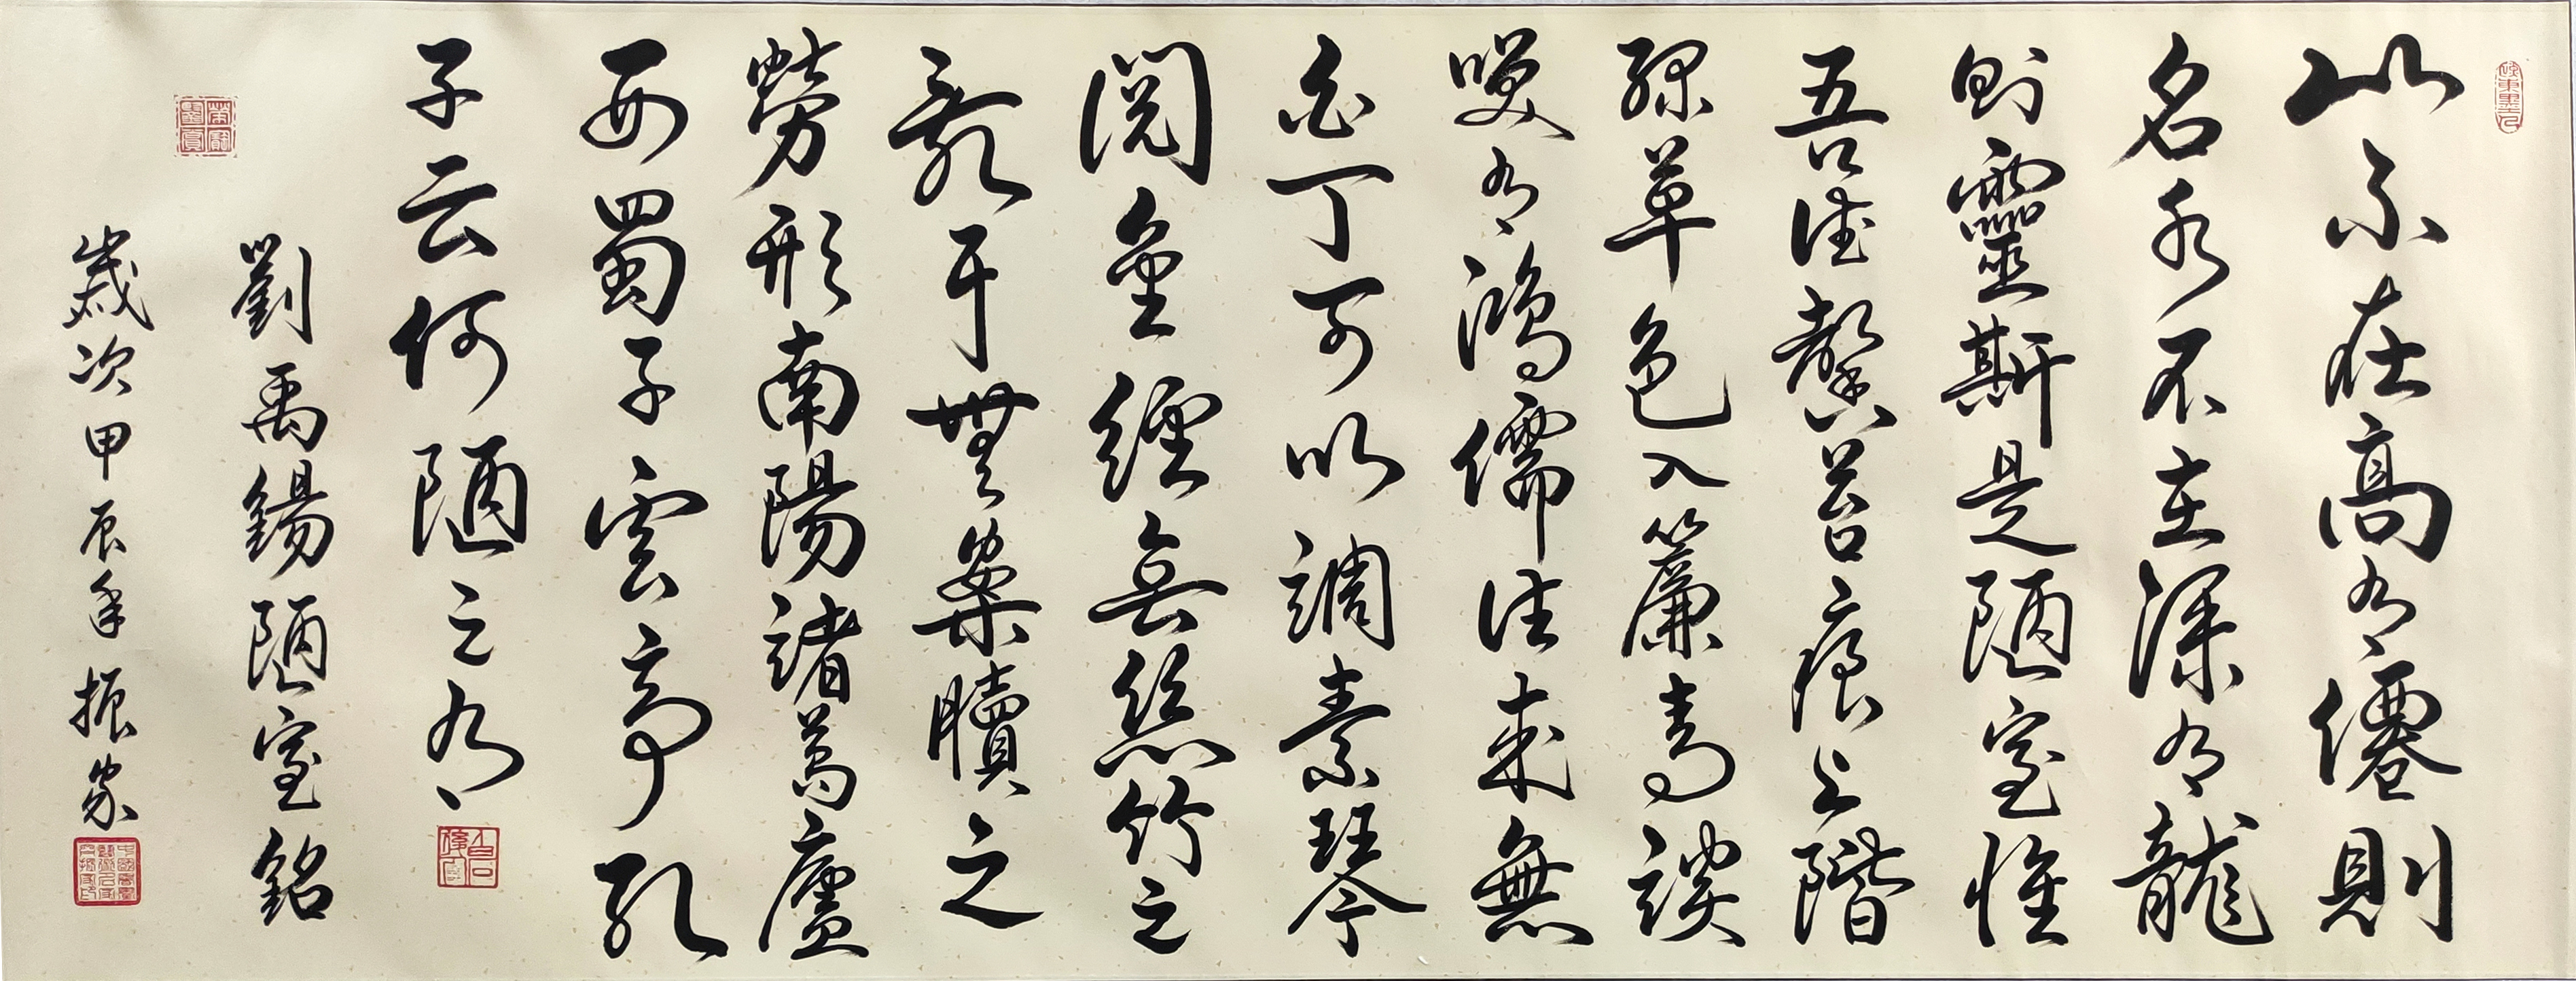 山不在高有僊則
名水不在深有龍
則靈斯是陋室惟
吾德馨苔痕上階
綠草色入簾青談
笑有鴻儒往來無
白丁可以調素琴
閱金經無絲竹之
亂耳無案牘之
勞形南陽諸葛廬
西蜀子雲亭孔
子云何陋之有
劉禹錫陋室銘
歲次甲辰年振家